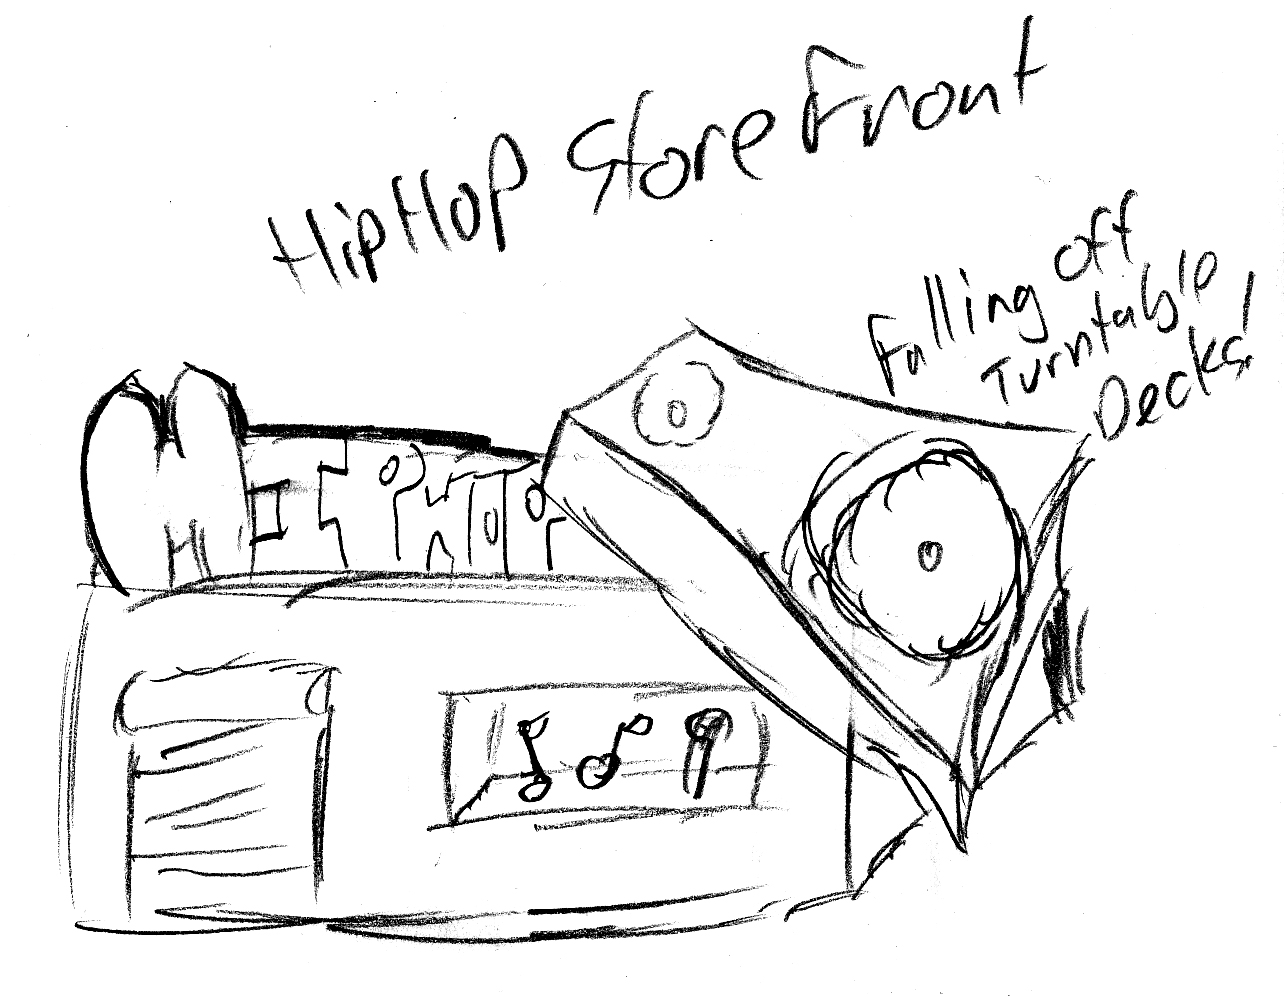 HipHop Store Front
Falling off
Turntable
Decks!